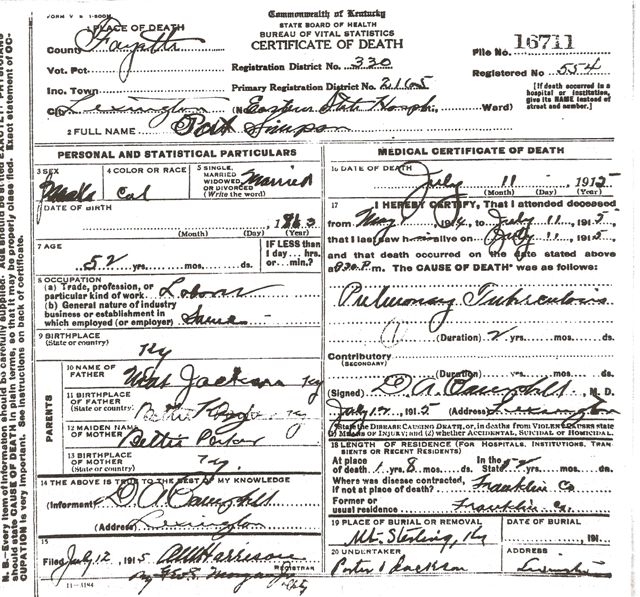 FORM V S 1-500M
Commonwealth of Kentucky
STATE BOARD OF HEALTH
BUREAU OF VITAL STATISTICS
CERTIFICATE OF DEATH
1 PLACE OF DEATH
County Fayette
Vot. Pct
Inc. Town
City Lexington
Registration District No. 330
Primary Registration District No. 2165
(No. Eastern State Hosph. Ward)
File No. 16711
Registered No. 554
[If death occurred in a hospital or institution, give its NAME instead of street and number.]
2 FULL NAME Simpson
PERSONAL AND STATISTICAL PARTICULARS
3 SEX
4 COLOR OR RACE Col
5 SINGLE, MARRIED WIDOWED OR DIVORCED (Write the word) Married
DATE OF BIRTH
(Month) (Day) (Year)
7 AGE
52 yrs. mos. ds.
IF LESS than 1 day... hrs. or... min.?
8 OCCUPATION
(a) Trade, profession, or particular kind of work Labor
(b) General nature of industry business or establishment in which employed (or employer) Same
9 BIRTHPLACE
(State or country) Ky
PARENTS
10 NAME OF FATHER Jackson Ky
11 BIRTHPLACE OF FATHER (State or country)
12 MAIDEN NAME OF MOTHER Bettie
13 BIRTHPLACE OF MOTHER (State or country) Ky.
14 THE ABOVE IS TRUE TO THE BEST OF MY KNOWLEDGE
(Informant)
(Address) Lexington
15
Filed July 12, 1915 Harrison
REGISTRAR
11-3184
MEDICAL CERTIFICATE OF DEATH
16 DATE OF DEATH
July 11 1915
(Month) (Day) (Year)
17 I HEREBY CERTIFY, That I attended deceased
from May 191 , to July 11, 1915,
that I last saw h alive on July 11, 1915,
and that death occurred on the date stated above
at m. The CAUSE OF DEATH* was as follows:
Pulmonary Tuberculosis
(Duration) 2 yrs. mos. ds.
Contributory
(SECONDARY)
(Duration) yrs. mos. ds.
(Signed) M. D.
July 12, 191 (Address) Lexington
*State the DISEASE CAUSING DEATH, or, in deaths from VIOLENT CAUSES state (1) MEANS OF INJURY; and (2) whether ACCIDENTAL, SUICIDAL or HOMICIDAL.
18 LENGTH OF RESIDENCE (FOR HOSPITALS, INSTITUTIONS, TRANSIENTS OR RECENT RESIDENTS)
At place of death 1 yrs. 8 mos. ds. In the State 52 yrs. mos. ds.
Where was disease contracted, if not at place of death? Franklin Co
Former or usual residence Franklin Co.
19 PLACE OF BURIAL OR REMOVAL
Mt. Sterling, Ky
DATE OF BURIAL
191
20 UNDERTAKER
Porter & Jackson
ADDRESS
Lexington
N. B.—Every item of information should be carefully supplied. AGE should be stated EXACTLY. PHYSICIANS should state CAUSE OF DEATH in plain terms, so that it may be properly classified. Exact statement of OCCUPATION is very important. See instructions on back of certificate.